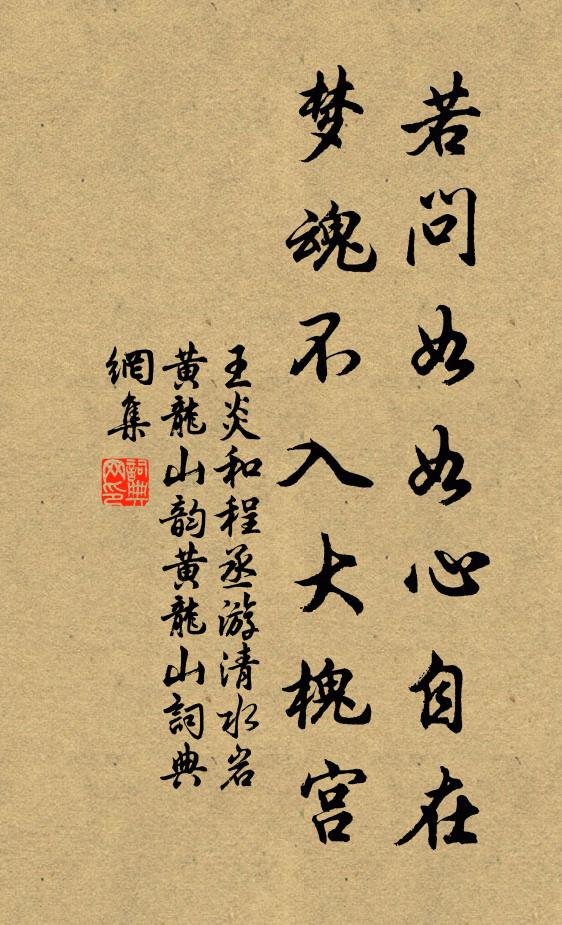 若问如如心自在
梦魂不入大槐宫
王炎和程丞游清水岩
黄龍山韵黄龍山詞典
網集
詞典网印